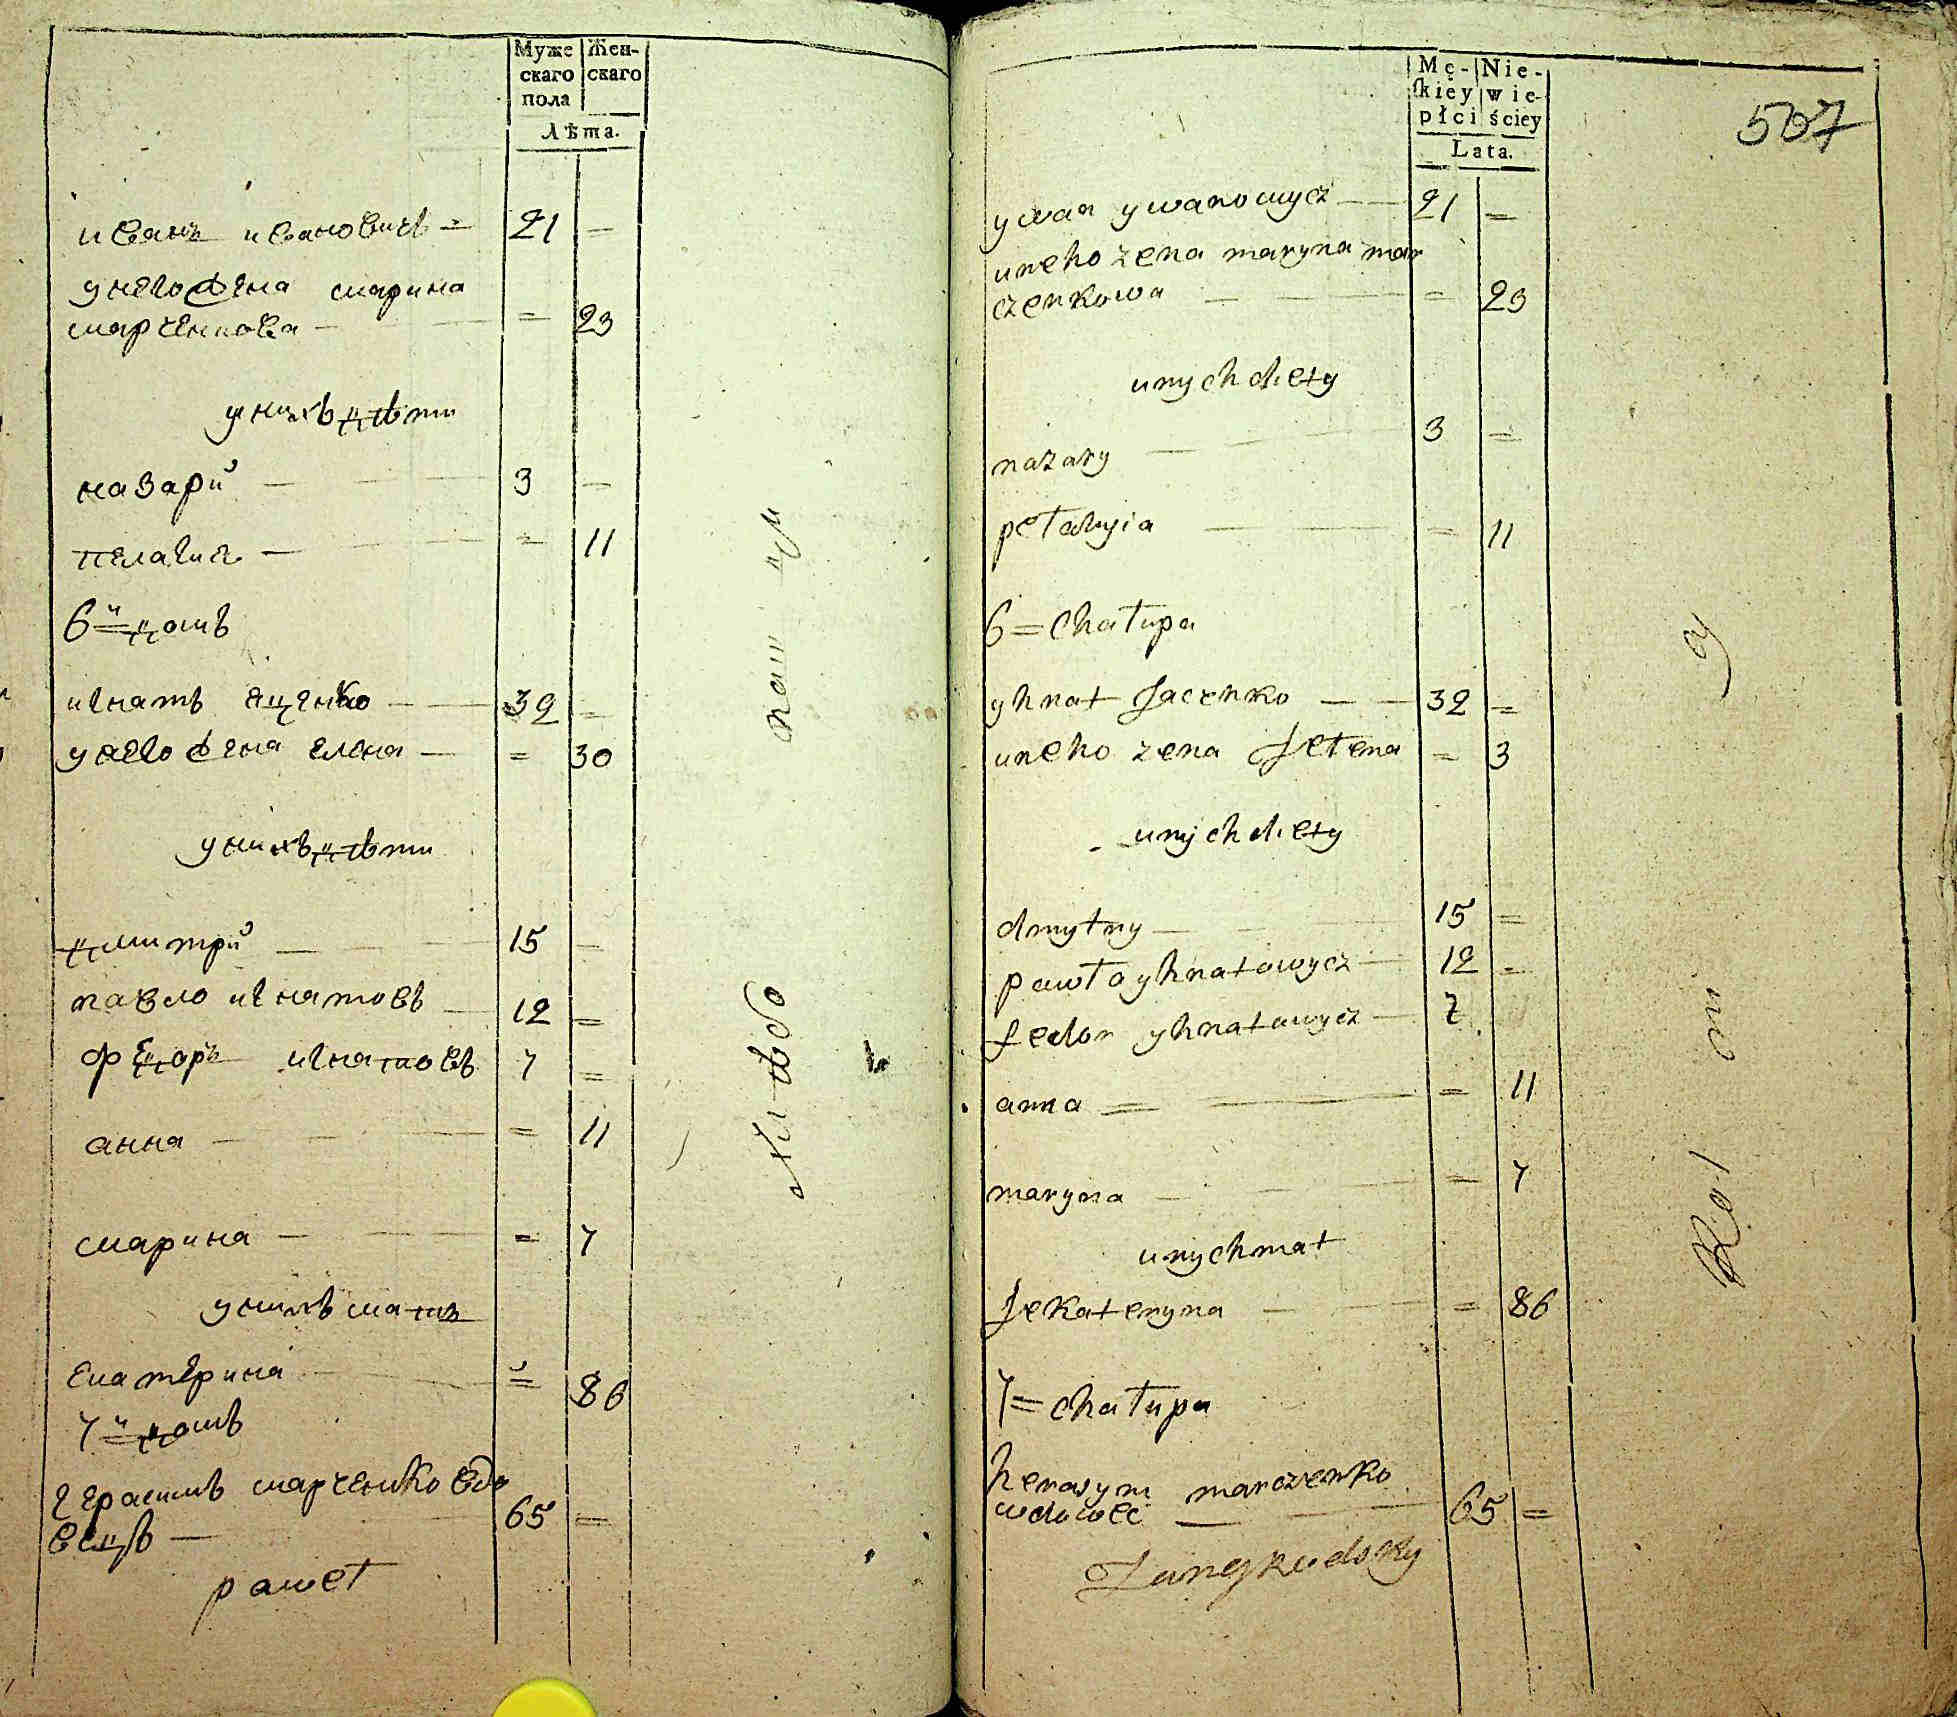 Муже Жен-
скаго скаго
пола
Лѣта.
иванъ ивановичъ = 21 —
унего жена марина
марченкова — = 23
унихъ дѣти
назарий — 3 —
пелагия — = 11
6й = домъ
игнатъ яценко — 32 —
унего жена елена — = 30
унихъ дѣти
дмитрий — 15 —
павло игнатовъ — 12 =
федоръ игнатовъ 7 =
анна — = 11
марина — = 7
унихъ мать
екатерина — = 86
7й = домъ
герасимъ марченко вдо
вецъ — 65 =
paweł
хлѣбо
паш ц
Mę- Nie-
skiey wie-
płci ściey
Lata.
507
ywan ywanowycz — 21 =
uneho zena maryna mar
czenkowa — = 23
unych diety
nazary — 3 =
pełahyia — = 11
6 = Chałupa
yhnat Jacenko — 32 =
uneho zena Jełena = 3
unych diety
dmytry — 15 =
pawło yhnatowycz — 12 =
fedor yhnatowycz — 7
anna = — = 11
maryna — = 7
unych mat
Jekateryna — = 86
7 = chałupa
herasym marczenko
wdowec — 65 =
Rol
ni
cy